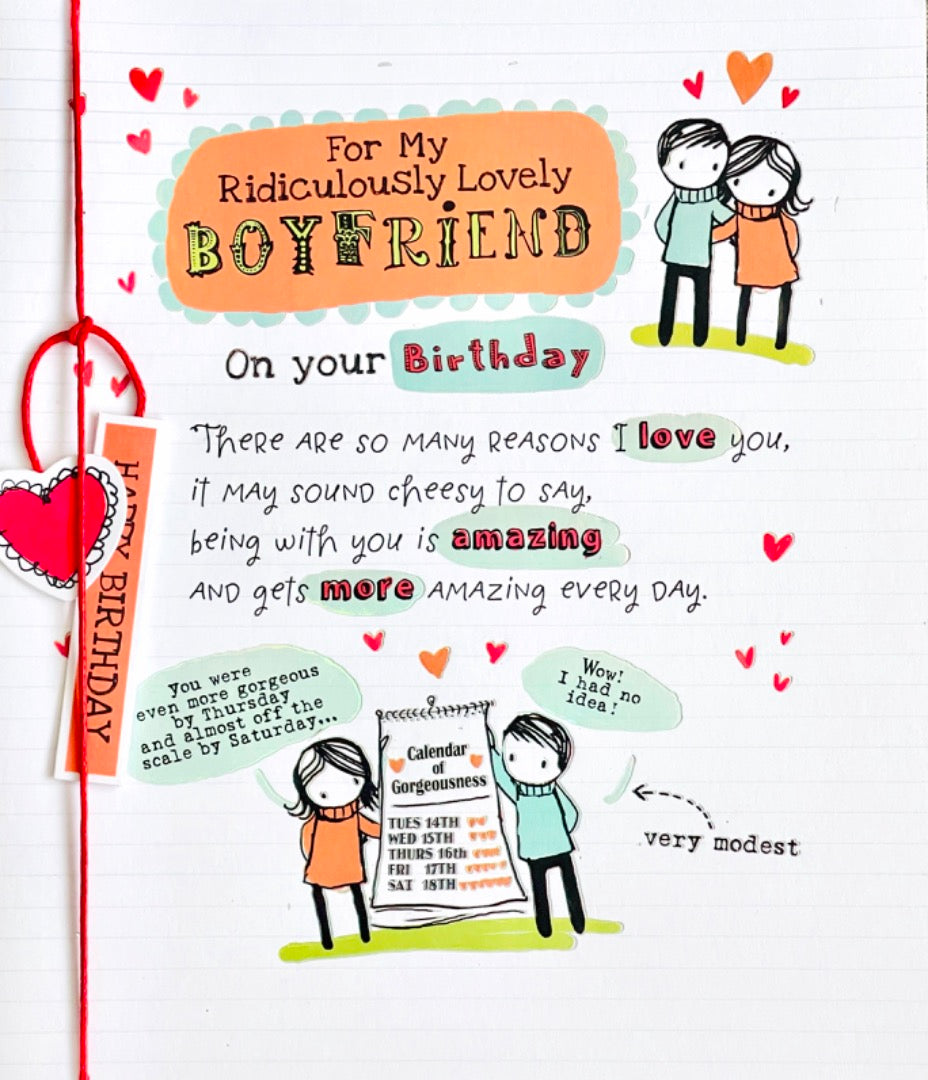 For My
Ridiculously Lovely
BOYFRiEND
On your Birthday
THERE ARE SO MANY REASONS I love you,
it MAY SOUND cheesy to SAY,
being with you is amazing
AND gets more AMAZING EVERY DAY.
HAPPY BIRTHDAY
you were
even more gorgeous
by Thursday
and almost off the
scale by Saturday...
Wow!
I had no
idea!
Calendar
of
Gorgeousness
TUES 14TH
WED 15TH
THURS 16th
FRI 17TH
SAT 18TH
very modest